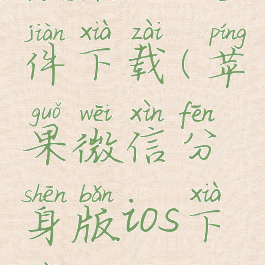 jiàn xià zài píng
件下载(苹
guǒ wēi xìn fēn
果微信分
shēn bǎn xià
身版ios下